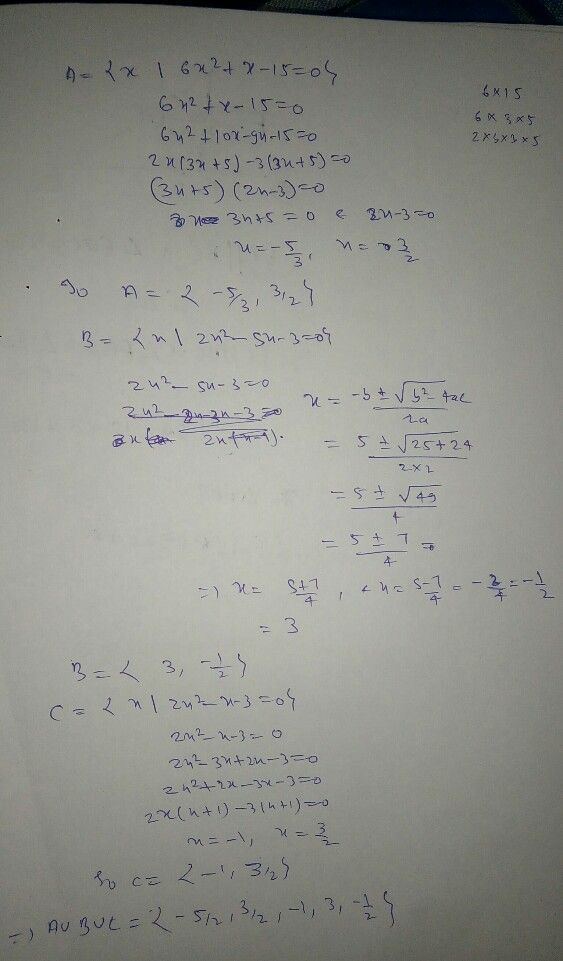 A = { x | 6x²+x-15=0}
6x²+x-15=0
6x²+10x-9x-15=0
2x(3x+5)-3(3x+5)=0
(3x+5) (2x-3)=0
3x+5=0 & 2x-3=0
x=-5/3, x=3/2
6×15
6×3×5
2×3×3×5
So A = { -5/3, 3/2}
B = {x | 2x²-5x-3=0}
2x²-5x-3=0
x = -b ± √b²-4ac / 2a
= 5 ± √25+24 / 2×2
= 5 ± √49 / 4
= 5 ± 7 / 4
=> x = 5+7/4, & x = 5-7/4 = -2/4 = -1/2
= 3
B = { 3, -1/2}
C = { x | 2x²-x-3=0}
2x²-x-3=0
2x²-3x+2x-3=0
2x²+2x-3x-3=0
2x(x+1)-3(x+1)=0
x=-1, x=3/2
So C = {-1, 3/2}
=> A∪B∪C = { -5/2, 3/2, -1, 3, -1/2}